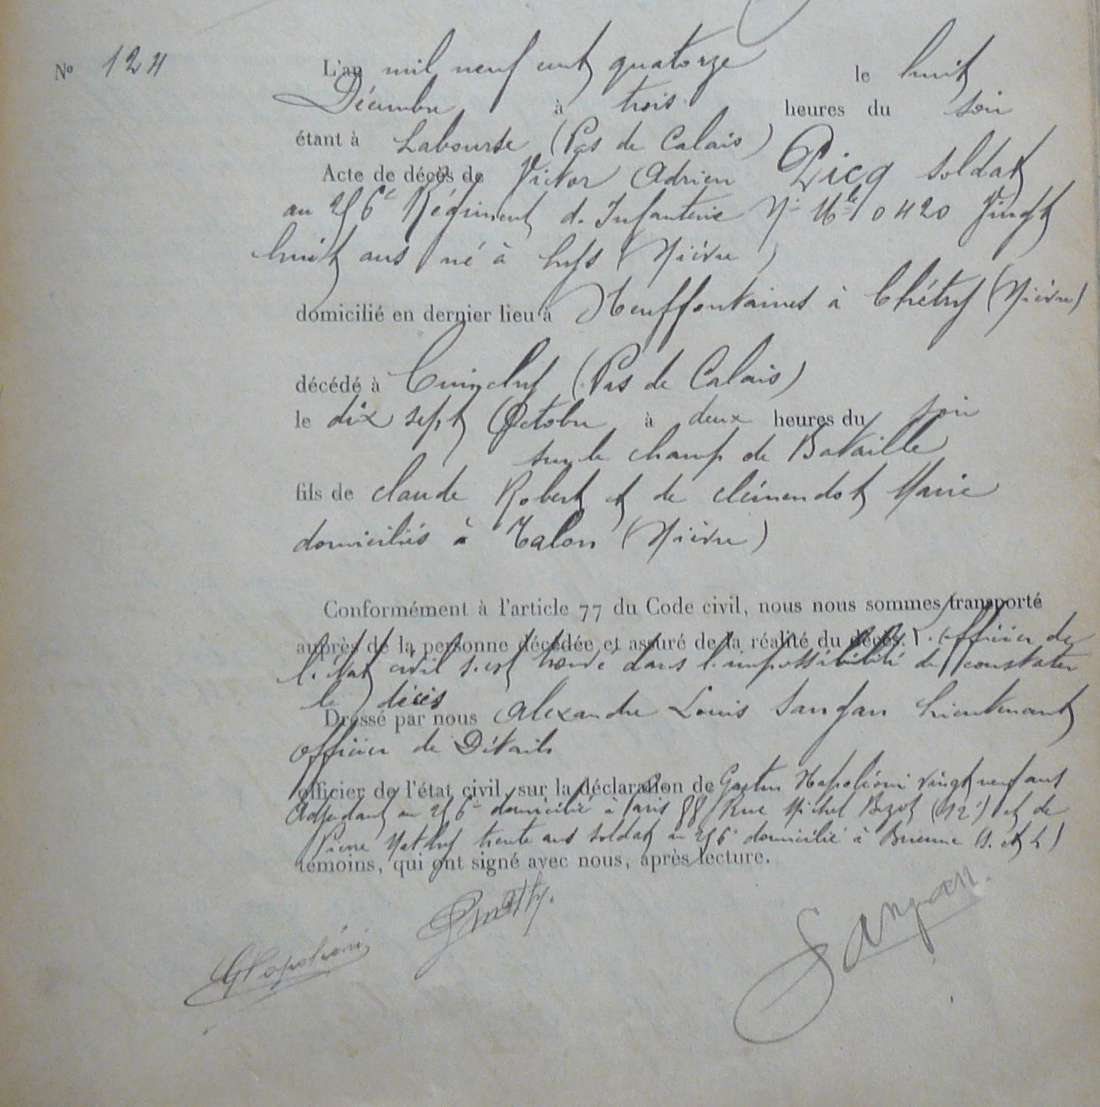 N° 124
L'an mil neuf cent quatorze le huit
Décembre à trois heures du soir
étant à Labourse (Pas de Calais)
Acte de décès de Victor Adrien Picq soldat
au 256e Régiment d'Infanterie N° Mle 10420 Vingt
huit ans né à (Nièvre)
domicilié en dernier lieu à Neuffontaines à (Nièvre)
décédé à (Pas de Calais)
le dix sept Octobre à deux heures du soir
sur le champ de Bataille
fils de Claude Robert et de Clémendot Marie
domiciliés à Talon (Nièvre)
Conformément à l'article 77 du Code civil, nous nous sommes transporté
auprès de la personne décédée et assuré de la réalité du décès. L'officier de
l'état civil s'est trouvé dans l'impossibilité de constater
le décès
Dressé par nous Alexandre Louis Sangan Lieutenant
officier de Détails
officier de l'état civil, sur la déclaration de Gaston Napoléoni vingt neuf ans
Adjudant au 256e domicilié à Paris 88 Rue Michel Bizot (12e) et de
Pierre trente ans soldat au 256e domicilié à
témoins, qui ont signé avec nous, après lecture.
GNapoléoni
Sangan.